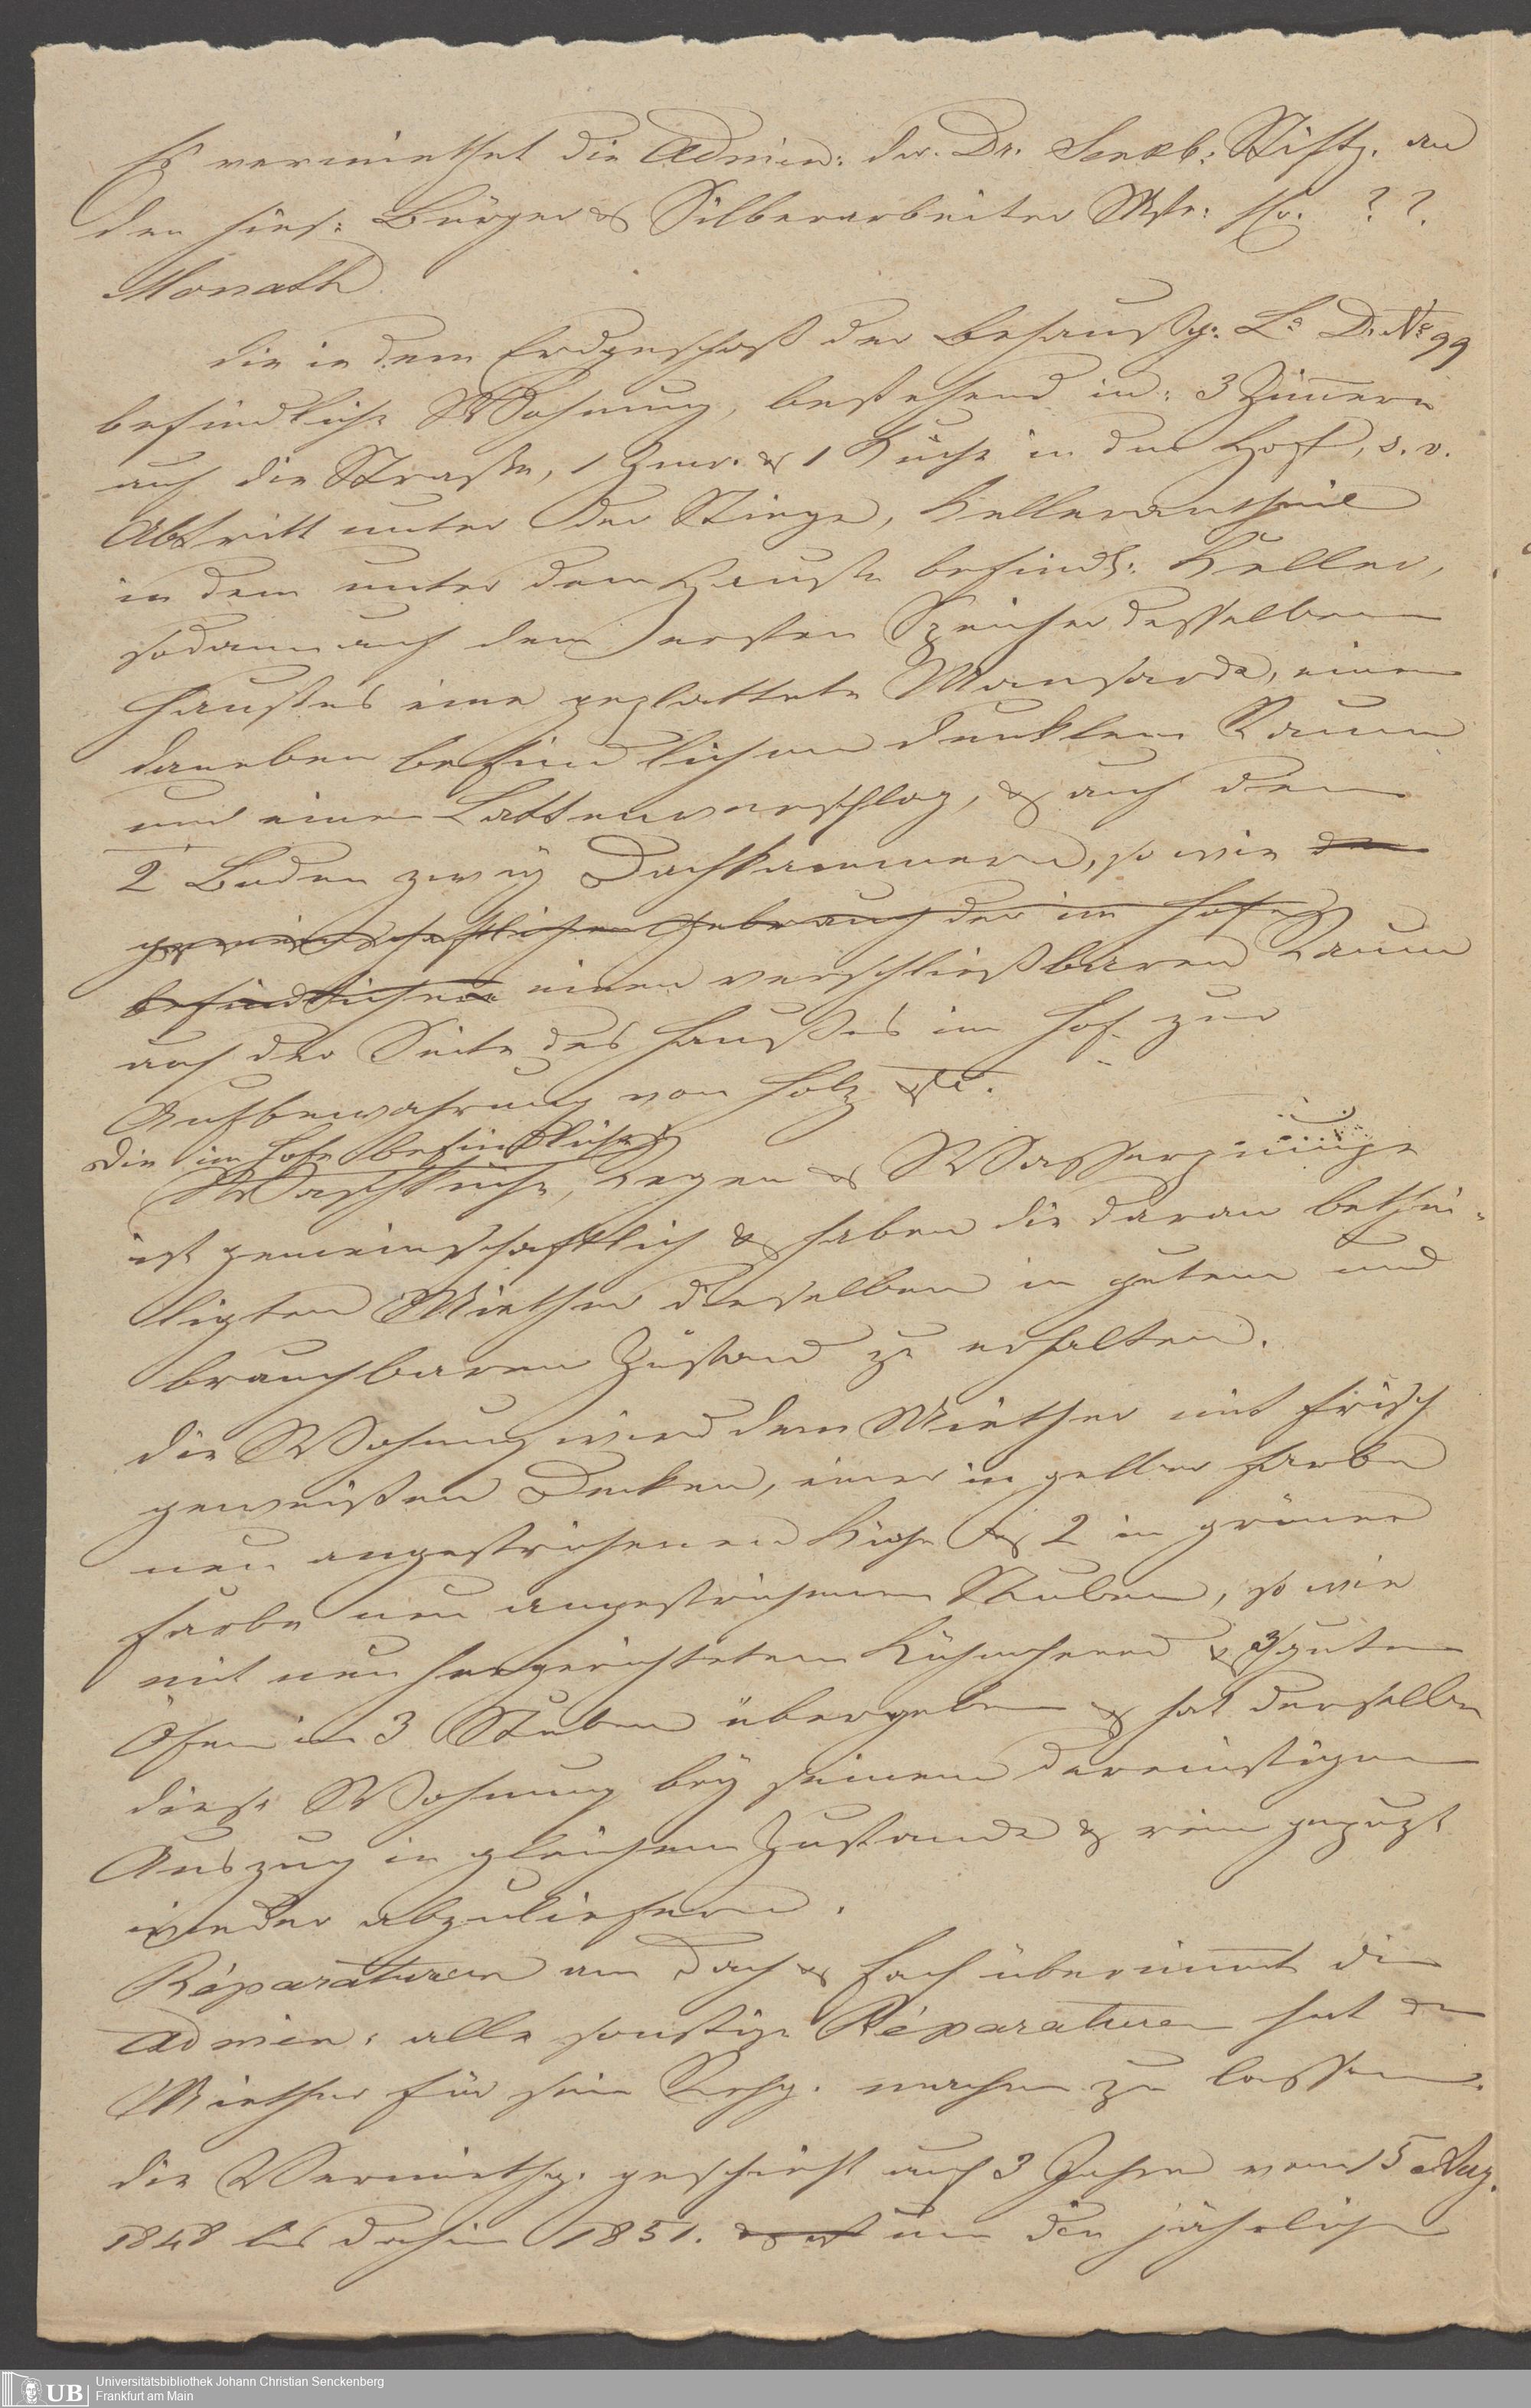 Es vermiethet die Admin: der Dr. Senkb: Stiftg. an
den hies: Bürger & Silberarbeiter Mstr: Hr. ? ?.
Monath
die in dem Erdgeschoß der Behaußg: La D. No 99
befindliche Wohnung, bestehend in: 3 Zimmern
auf die Straße, 1 Zmr. & 1 Küche in den Hof, s. v.
Abtritt unter der Stiege, Kellerantheil
in dem unter dem Hauße befindl: Keller,
sodann auf dem ersten Speicher desselben
Haußes eine geplattete Mansarde, einen
daneben befindlichen dunklen Raum
und einen Lattenverschlag, & auf dem
2 Boden zwey Dachkammern, so wie den
gemeinschaftlichen Gebrauch der im Hofe
befindlichen einen verschließbaren Raum
auf der Seite des Haußes im Hof zur
Aufbewahrung von Holz etc.
Die im Hofe befindliche
Waschküche, Regen & Wasserpumpe
ist gemeinschaftlich & haben die daran bethei-
ligten Miether dieselben in gutem und
brauchbaren Zustand zu erhalten.
die Wohnung wird dem Miether mit frisch
geweißten Decken, einer in gelber Farbe
neu angestrichenen Küche & 2 in grüner
Farbe neu angestrichenen Stuben, so wie
mit neu hergerichtetem Küchenherd & 3 guten
Öfen in 3 Stuben übergeben & hat derselbe
diese Wohnung bey seinem dereinstigen
Auszug in gleichem Zustande & rein geputzt
wieder abzuliefern.
Réparaturen an Dach & Fach übernimmt die
Admin: alle sonstige Réparaturen hat der
Miether für sein Rechg. machen zu lassen.
die Vermiethg. geschieht auf 3 Jahre vom 15 Aug.
1848 bis dahin 1851. um den jährlichen